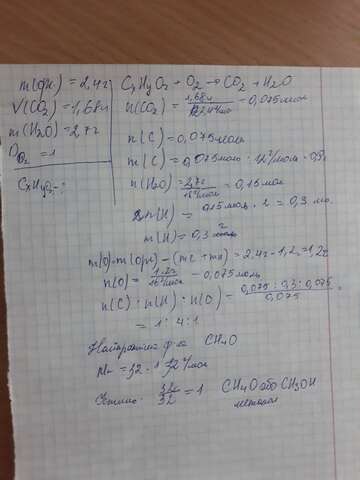 m(орг.) = 2,4г
V(CO₂) = 1,68л
m(H₂O) = 2,7г
D O₂ = 1
CxHyOz - ?
CxHyOz + O₂ → CO₂ + H₂O
n(CO₂) = 1,68л / 22,4л/моль = 0,075моль
n(C) = 0,075моль
m(C) = 0,075моль · 12г/моль = 0,9г
n(H₂O) = 2,7г / 18г/моль = 0,15моль
n(H) = 0,15моль · 2 = 0,3 мо
m(H) = 0,3 г
m(O) = m(орг) - (mC + mH) = 2,4г - 1,2 = 1,2г
n(O) = 1,2г / 16г/моль = 0,075моль
n(C) : n(H) : n(O) = 0,075 : 0,3 : 0,075 / 0,075
= 1 : 4 : 1
CH₄O
M = 32 · 1 = 32г/моль
32/32 = 1 CH₄O або CH₃OH
метанол